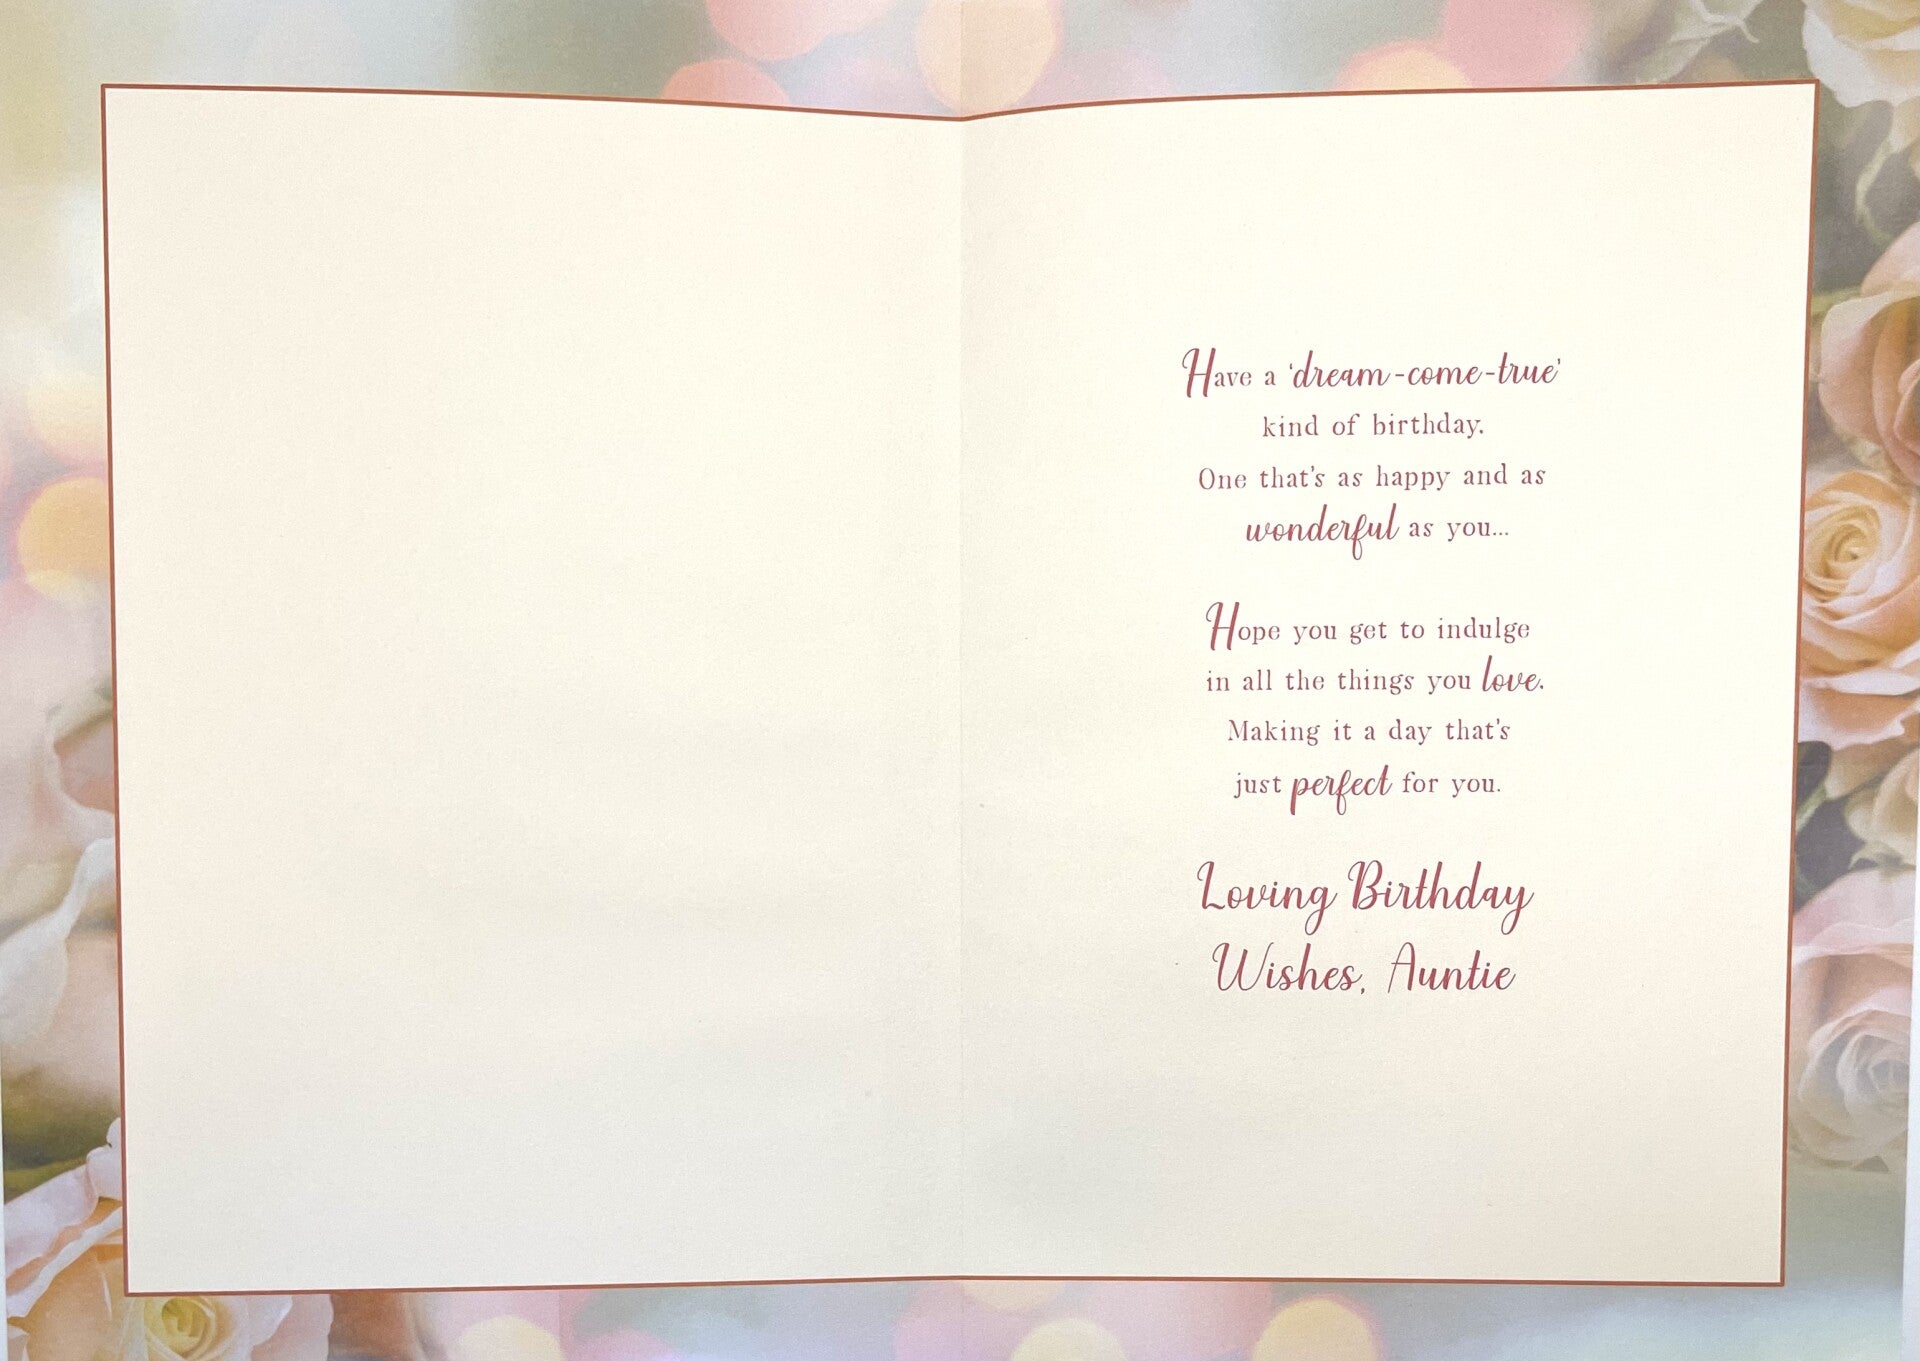 Have a ‘dream-come-true’
kind of birthday.
One that’s as happy and as
wonderful as you...
Hope you get to indulge
in all the things you love.
Making it a day that’s
just perfect for you.
Loving Birthday
Wishes, Auntie